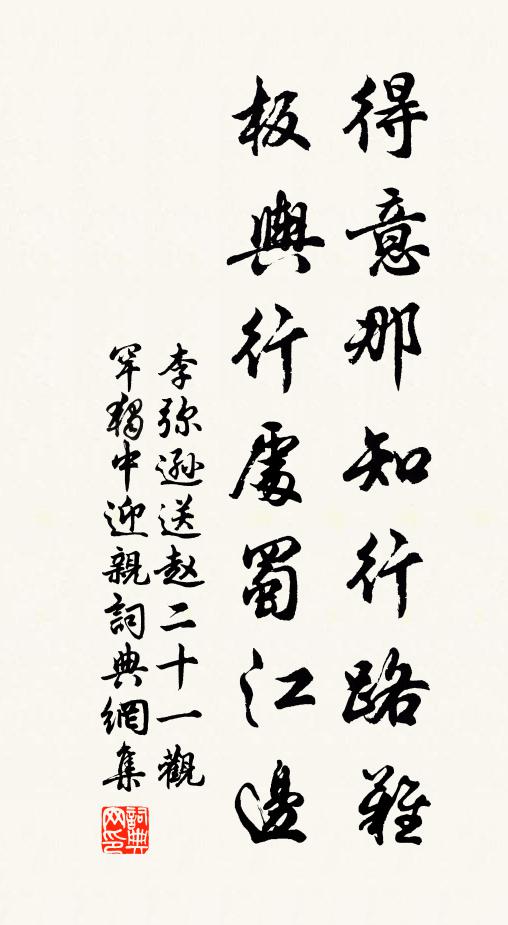 得意那知行路難
板輿行處蜀江邊
李弥遜送赵二十一觀
罕獨中迎親詞典網集
詞典
网印